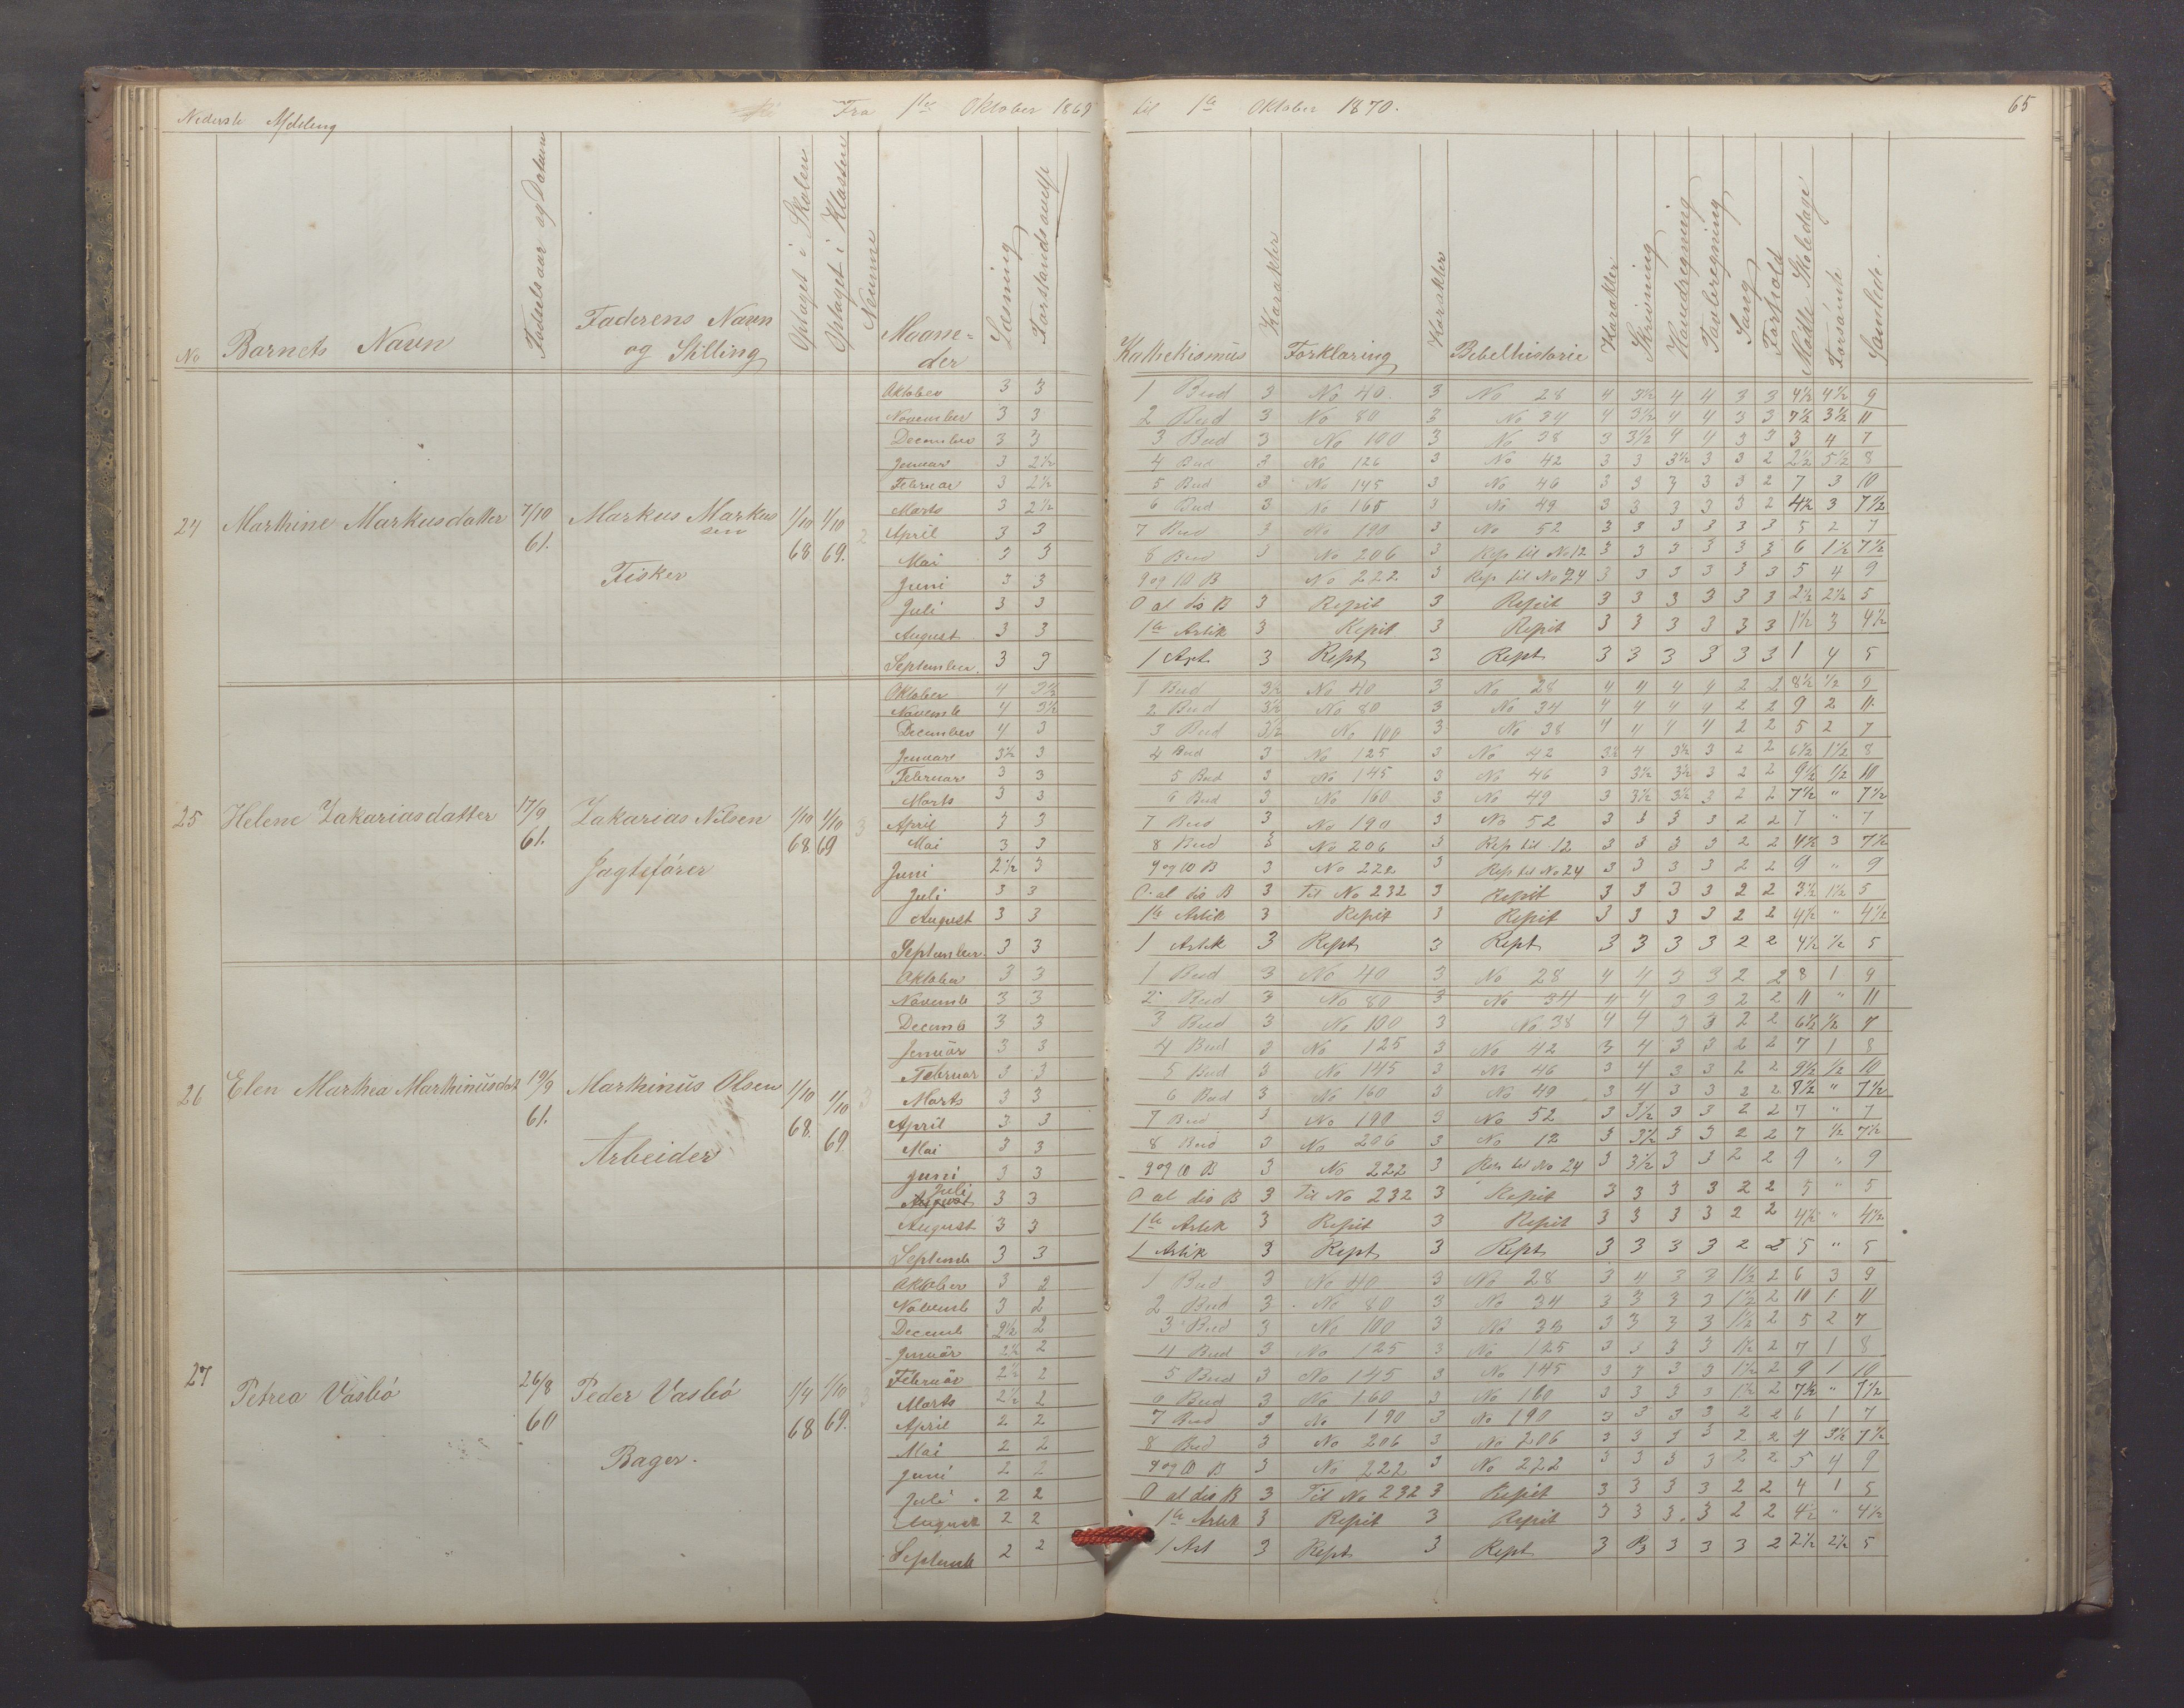 Nederste Afdeling Fra 1ste Oktober 1869 til 1te Oktober 1870. 65
No Barnets Navn Fødselsaar og Datum Faderens Navn og Stilling Optaget i Skolen Optaget i Klassen Maaneder Læsning Forstandsøvelse Kathekismus Karakter Forklaring Karakter Bibelhistorie Karakter Skrivning Hovedregning Tavleregning Sang Forhold Mødte Skoledage Forsømte Samlede
24 Marthine Markusdatter 7/10 61. Markus Markussen Fisker 1/10 68 1/10 69. 2
Oktober 3 3 1 Bud 3 No 40 3 No 28 4 3½ 4 4 3 3 4½ 4½ 9
November 3 3 2 Bud 3 No 80 3 No 34 4 3½ 4 4 3 3 7½ 3½ 11
December 3 3 3 Bud 3 No 100 3 No 38 3 3½ 4 4 3 3 3 4 7
Januar 3 2½ 4 Bud 3 No 126 3 No 42 3 3 3½ 3 3 2 2½ 5½ 8
Februar 3 2½ 5 Bud 3 No 145 3 No 46 3 3 3 3 3 2 7 3 10
Marts 3 2½ 6 Bud 3 No 165 3 No 49 3 3 3 3 3 2 4½ 3 7½
April 3 3 7 Bud 3 No 190 3 No 52 3 3 3 3 3 3 5 2 7
Mai 3 3 8 Bud 3 No 206 3 Rep til No 12 3 3 3 3 3 3 6 1½ 7½
Juni 3 3 9 og 10 B No 222 3 Rep til No 24 3 3 3 3 3 3 5 4 9
Juli 3 3 O al dis B 3 Repit 3 Repit 3 3 3 3 3 3 2½ 2½ 5
August 3 3 1te Artik 3 Repit 3 Repit 3 3 3 3 3 3 1½ 3 4½
September 3 3 1 Art 3 Rept 3 Rept 3 3 3 3 3 3 1 4 5
25 Helene Zakariasdatter 17/9 61. Zakarias Nilsen Jagtefører 1/10 68 1/10 69 3
Oktober 4 3½ 1 Bud 3½ No 40 3 No 28 4 4 4 4 2 2 8½ ½ 9
Novemb 4 3½ 2 Bud 3½ No 80 3 No 34 4 4 4 4 2 2 9 2 11
December 4 3 3 Bud 3½ No 100 3 No 38 4 4 4 4 2 2 5 2 7
Januar 3½ 3 4 Bud 3 No 125 3 No 42 3½ 4 3½ 3 2 2 6½ 1½ 8
Februar 3 3 5 Bud 3 No 145 3 No 46 3 3½ 3½ 3 2 2 9½ ½ 10
Marts 3 3 6 Bud 3 No 160 3 No 49 3 3½ 3½ 3 2 2 7½ " 7½
April 3 3 7 Bud 3 No 190 3 No 52 3 3 3 3 2 2 7 " 7
Mai 3 3 8 Bud 3 No 206 3 Rep til 12 3 3 3 3 2 2 4½ 3 7½
Juni 2½ 3 9 og 10 B 3 No 222 3 Rep til No 24 3 3 3 3 2 2 9 " 9
Juli 3 3 O al dis B 3 Til No 232 3 Repit 3 3 3 3 2 2 3½ 1½ 5
August 3 3 1te Artik 3 Repit 3 Repit 3 3 3 3 2 2 4½ " 4½
September 3 3 1 Artik 3 Rept 3 Rept 3 3 3 3 2 2 4½ ½ 5
26 Elen Marthea Marthinusdat 19/9 61. Marthinus Olsen Arbeider 1/10 68. 1/10 69 3
Oktober 3 3 1 Bud 3 No 40 3 No 28 4 4 3 3 2 2 8 1 9
Novemb 3 3 2 Bud 3 No 80 3 No 34 4 4 3 3 2 2 11 " 11
Decemb 3 3 3 Bud 3 No 100 3 No 38 4 4 3 3 2 2 6½ ½ 7
Januar 3 3 4 Bud 3 No 125 3 No 42 3 4 3 3 2 2 7 1 8
Februar 3 3 5 Bud 3 No 145 3 No 46 3 4 3 3 2 2 9½ ½ 10
Marts 3 3 6 Bud 3 No 160 3 No 49 3 4 3 3 2 2 7½ " 7½
April 3 3 7 Bud 3 No 190 3 No 52 3 3½ 3 3 2 2 7 " 7
Mai 3 3 8 Bud 3 No 206 3 No 12 3 3½ 3 3 2 2 7 ½ 7½
Juni 3 3 9 og 10 B 3 No 222 3 Rep til No 24 3 3½ 3 3 2 2 9 " 9
Juli 3 3 O al dis B 3 Til No 232 3 Repit 3 3 3 3 2 2 5 " 5
August 3 3 1te Artik 3 Repit 3 Repit 3 3 3 3 2 2 4½ " 4½
Septemb 3 3 1 Artik 3 Rept 3 Rept 3 3 3 3 2 2 5 " 5
27 Petrea Vasbø 26/8 60 Peder Vasbø Bager. 1/4 68 1/10 69. 3
Oktober 3 2 1 Bud 3 No 40 3 No 28 3 4 3 3 1½ 2 6 3 9
Novemb 3 2 2 Bud 3 No 80 3 No 34 3 3 3 3 1½ 2 10 1 11
Decemb 2½ 2 3 Bud 3 No 100 3 No 38 3 3 3 3 1½ 2 5 2 7
Januar 2½ 2 4 Bud 3 No 125 3 No 125 3 3 3 3 1½ 2 7 1 8
Februar 2½ 2 5 Bud 3 No 145 3 No 145 3 3 3 3 1½ 2 9 1 10
Marts 2½ 2 6 Bud 3 No 160 3 No 160 3 3 3 3 1½ 2 7½ " 7½
April 2 2 7 Bud 3 No 190 3 No 190 3 3 3 3 2 2 6 1 7
Mai 2 2 8 Bud 3 No 206 3 No 206 3 3 3 3 2 2 4 3½ 7½
Juni 2 2 9 og 10 B 3 No 222 3 No 222 3 3 3 3 2 2 5 4 9
Juli 2 2 O al dis B 3 Til No 232 3 Repit 3 3 3 3 2 2 4 1 5
August 2 2 1te Artik 3 Repit 3 Repit 3 3 3 3 2 2 4½ " 4½
Septemb 2 2 1 Art 3 Rept 3 Rept 3 3 3 3 3 2 2½ 2½ 5